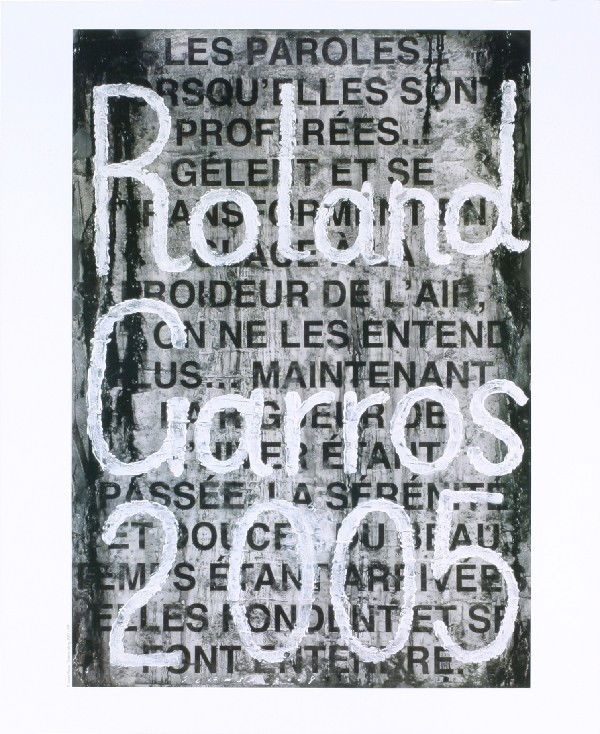 LES PAROLES...
LORSQU'ELLES SONT
PROFÉRÉES...
GÉLENT ET SE
TRANSFORMENT EN
GLACE À LA
FROIDEUR DE L'AIR,
ON NE LES ENTEND
PLUS... MAINTENANT
LA RIGUEUR DE
L'HIVER ÉTANT
PASSÉE, LA SÉRÉNITÉ
ET DOUCEUR DU BEAU
TEMPS ÉTANT ARRIVÉE
ELLES FONDENT ET SE
FONT ENTENDRE.
Roland
Garros
2005